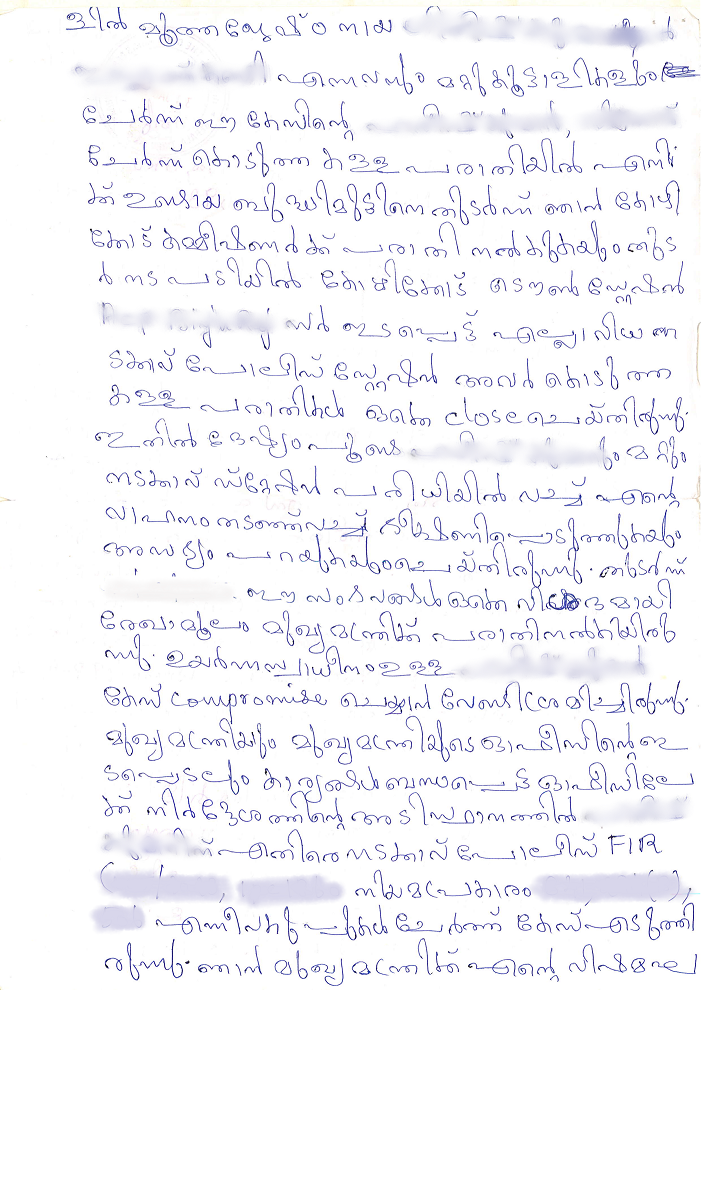 ളിൽ മൂത്ത ജ്യേഷ്ഠനായ
എന്നവനും മറ്റു കൂട്ടാളികളും
ചേർന്ന് ഈ കേസിന്റെ
ചേർന്ന് കൊടുത്ത കള്ള പരാതിയിൽ എനി
ക്ക് ഉണ്ടായ ബുദ്ധിമുട്ടിനെ തുടർന്ന് ഞാൻ കോഴി
ക്കോട് കമ്മീഷണർക്ക് പരാതി നൽകുകയും തുട
ർ നടപടിയിൽ കോഴിക്കോട് ടൌൺ സ്റ്റേഷൻ
സർ ഇടപ്പെട്ട് എല്ലാം നിയ ന
ടക്കാവ് പോലീസ് സ്റ്റേഷൻ അവർ കൊടുത്ത
കള്ള പരാതികൾ ഒക്കെ close ചെയ്തിരുന്നു.
ഇതിൽ ദേഷ്യം പൂണ്ട നും മറ്റും
നടക്കാവ് സ്റ്റേഷൻ പരിധിയിൽ വച്ച് എന്റെ
വാഹനം തടഞ്ഞ് വച്ച് ഭീഷണിപ്പെടുത്തുകയും
അസഭ്യം പറയുകയും ചെയ്തിരുന്നു. തുടർന്ന്
ഈ സംഭവങ്ങൾ ഒക്കെ വിശദമായി
രേഖാമൂലം മുഖ്യമന്ത്രിക്ക് പരാതി നൽകിയിരു
ന്നു. ഉയർന്ന സ്വാധീനം ഉള്ള
കേസ് compromise ചെയ്യാൻ വേണ്ടി ശ്രമിച്ചിരുന്നു.
മുഖ്യമന്ത്രിയും മുഖ്യമന്ത്രിയുടെ ഓഫീസിന്റെ ഇ
ടപ്പെടലും കാര്യങ്ങൾ ബന്ധപ്പെട്ട ഓഫീസിലേ
ക്ക് നിർദ്ദേശത്തിന്റെ അടിസ്ഥാനത്തിൽ
ന് എതിരെ നടക്കാവ് പോലീസ് FIR
നിയമപ്രകാരം
എന്നീ വകുപ്പുകൾ ചേർത്ത് കേസ് എടുത്തി
രുന്നു. ഞാൻ മുഖ്യമന്ത്രിക്ക് എന്റെ വിഷമഘ